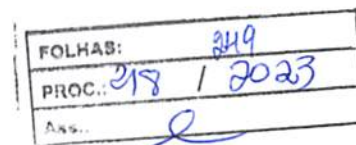 FOLHAS: 249
PROC.: 218 / 2023
Ass.: